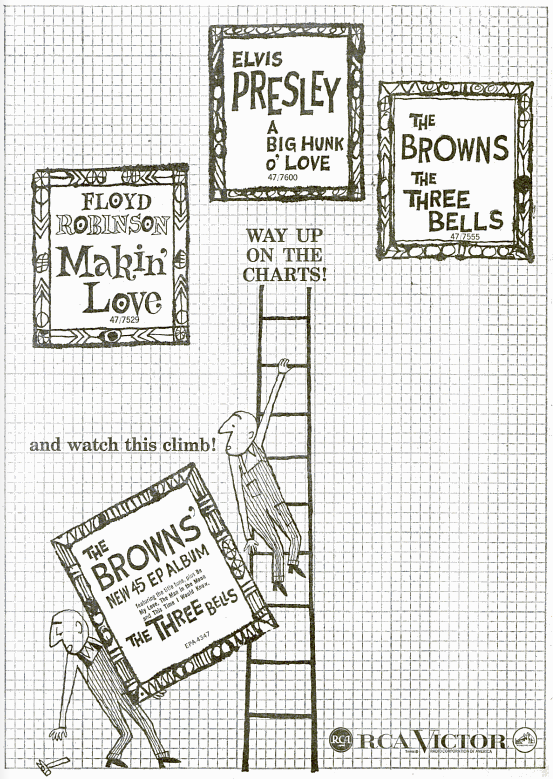 ELVIS
PRESLEY
A
BIG HUNK
O' LOVE
47/7600
THE
BROWNS
THE
THREE
BELLS
47/7555
FLOYD
ROBINSON
Makin'
Love
47/7529
WAY UP
ON THE
CHARTS!
and watch this climb!
THE
BROWNS'
NEW 45 EP ALBUM
featuring the title tune plus Be
My Love, The Man in the Moon
and This Time I Would Know.
THE THREE BELLS
EPA 4347
RCA
RCA VICTOR
RADIO CORPORATION OF AMERICA